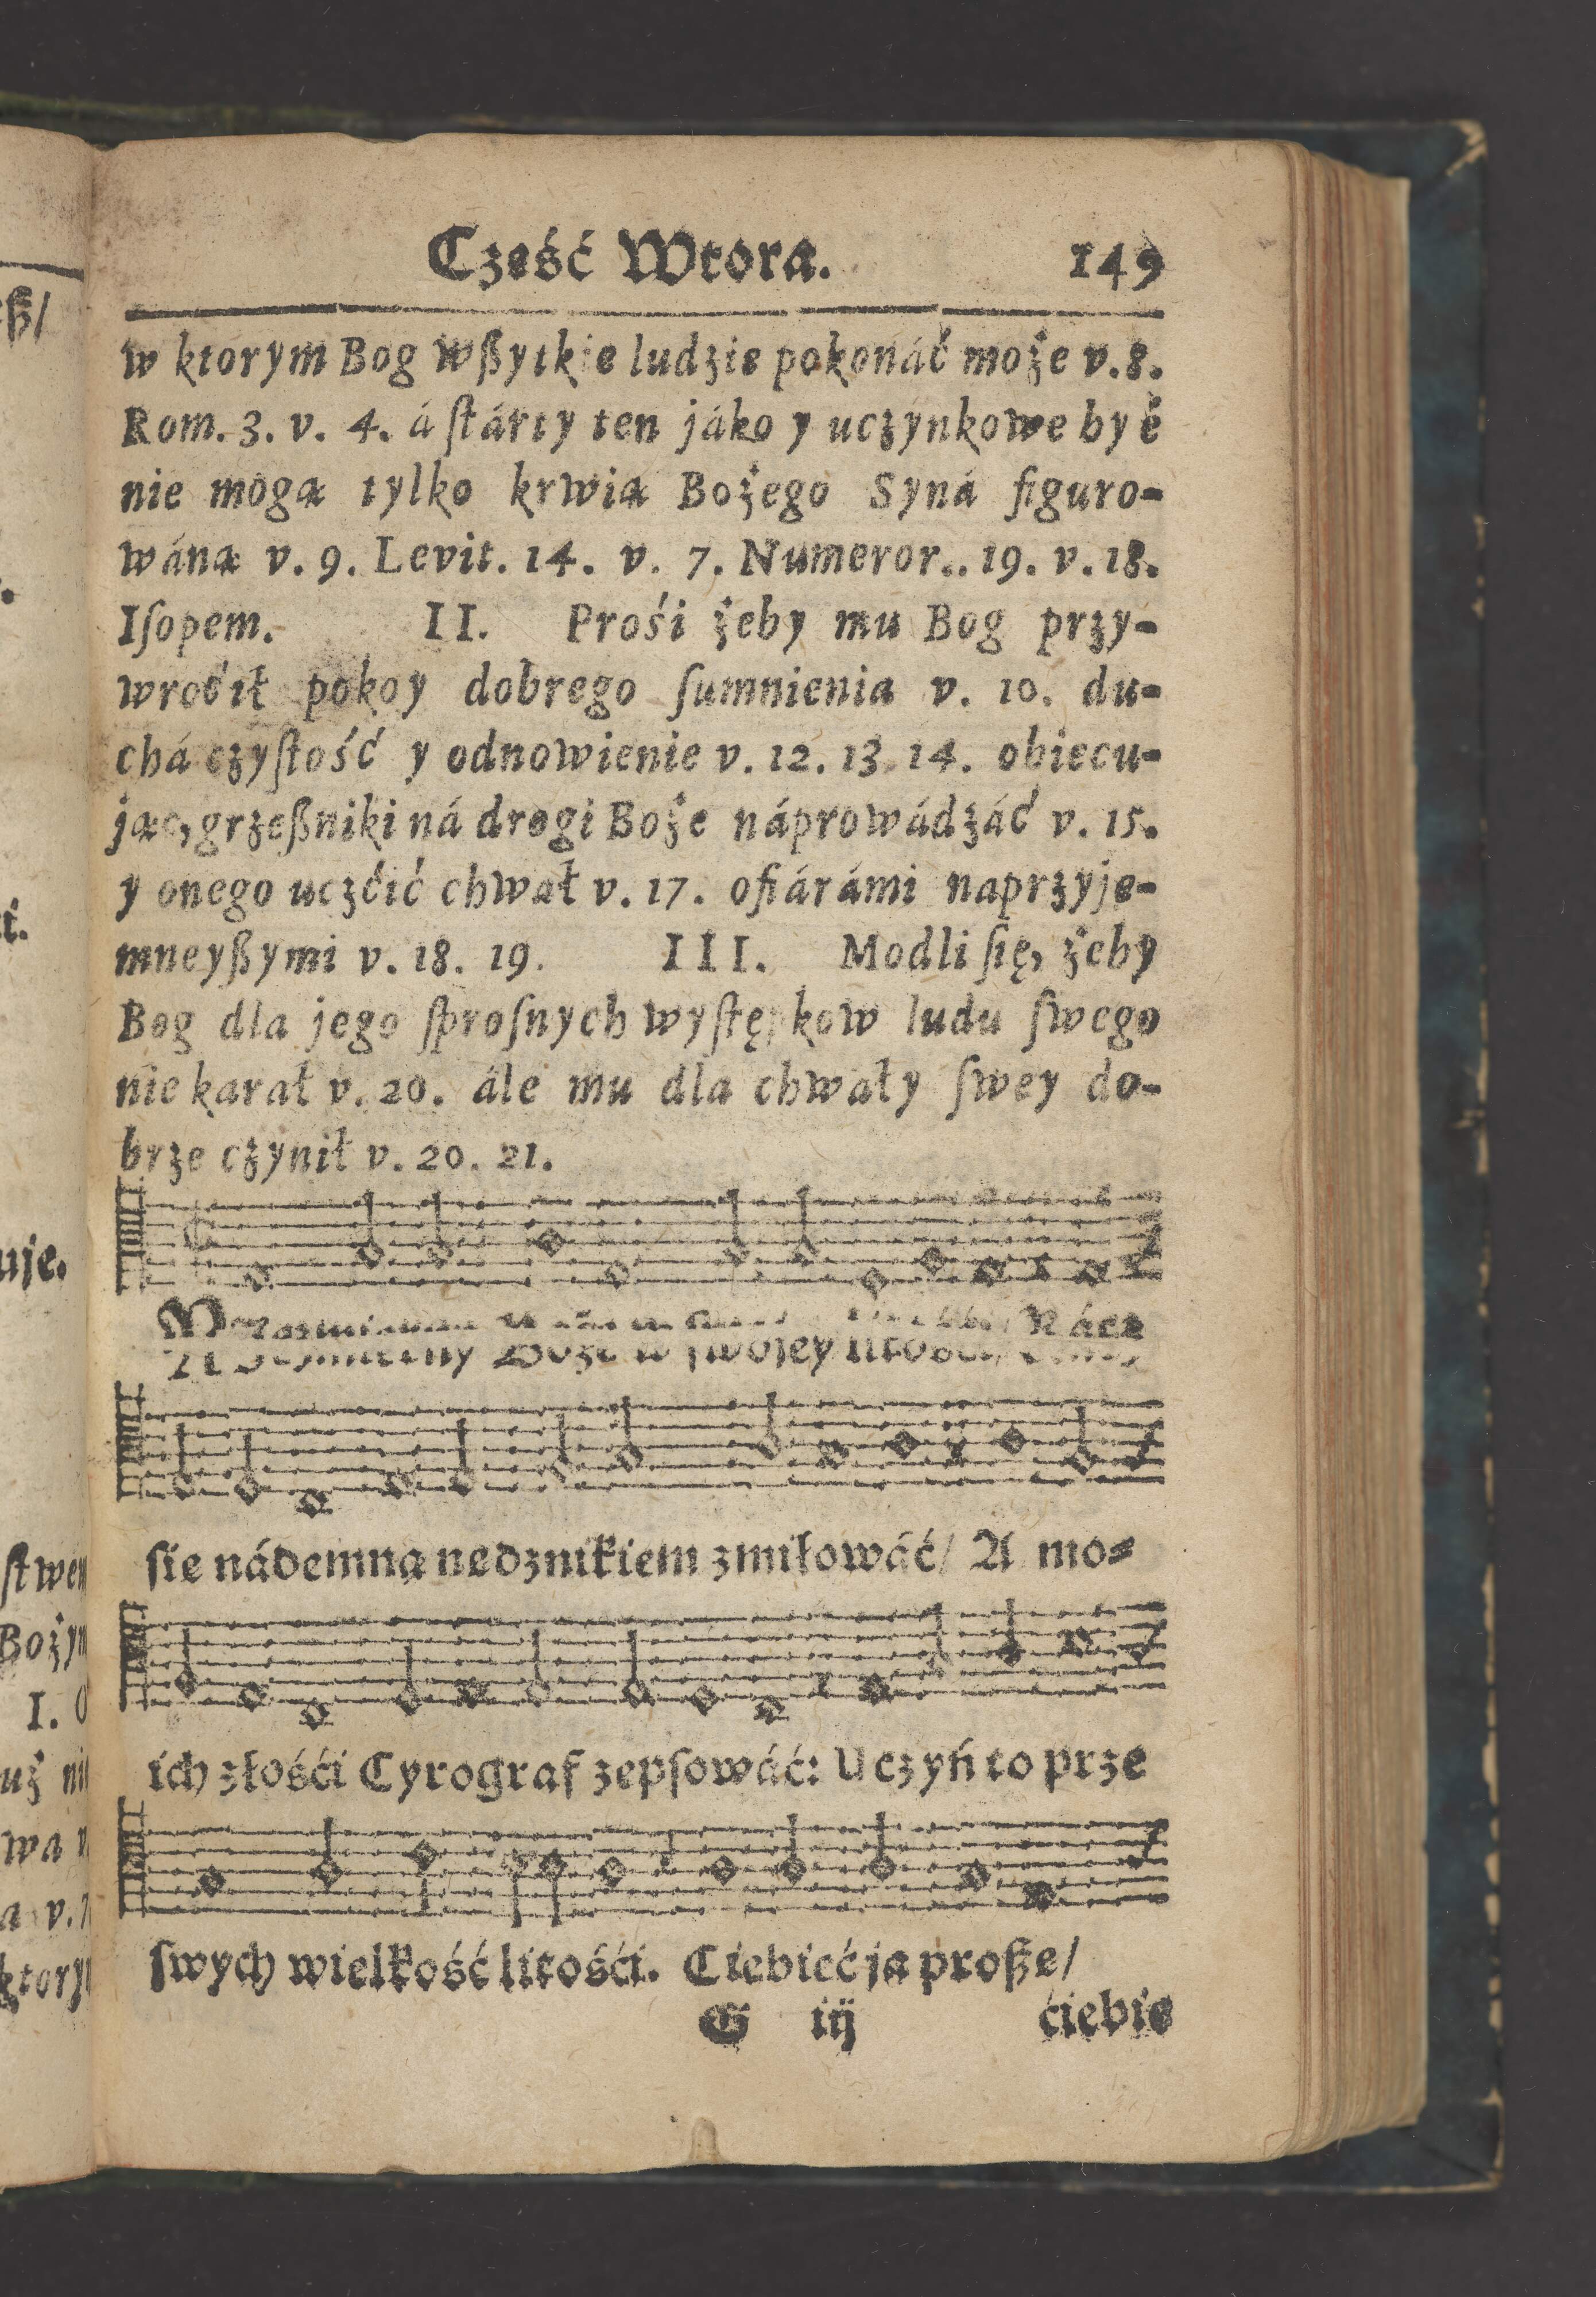 Cześć Wtora. 149
w ktorym Bog wßytkie ludzie pokonáć może v. 8.
Rom. 3. v. 4. á ſtárty ten jáko y uczynkowe być
nie mogą tylko krwią Bożego Syná figuro-
wáną v. 9. Levit. 14. v. 7. Numeror.. 19. v. 18.
Iſopem. II. Prośi żeby mu Bog przy-
wroćił pokoy dobrego ſumnienia v. 10. du-
chá czyſtość y odnowienie v. 12. 13. 14. obiecu-
jąc, grzeßniki ná drogi Boże náprowádzáć v. 15.
y onego uczćić chwał v. 17. ofiárámi naprzyje-
mneyßymi v. 18. 19. III. Modli ſię, żeby
Bog dla jego ſproſnych wyſtępkow ludu ſwego
nie karał v. 20. ále mu dla chwały ſwey do-
brze czynił v. 20. 21.
Boże w ſwojey Rácz
ſie nádemną nędznikiem zmiłowáć/ A mo-
ich złośći Cyrograf zepſowáć: Uczyń to prze
ſwych wielkość litośći. Ciebiećja proßę/
G iij ćiebie
ß/
.
ć.
uje.
ſtwem
Bożym
I. O
uż ni
wa v
a v. 7
ktory